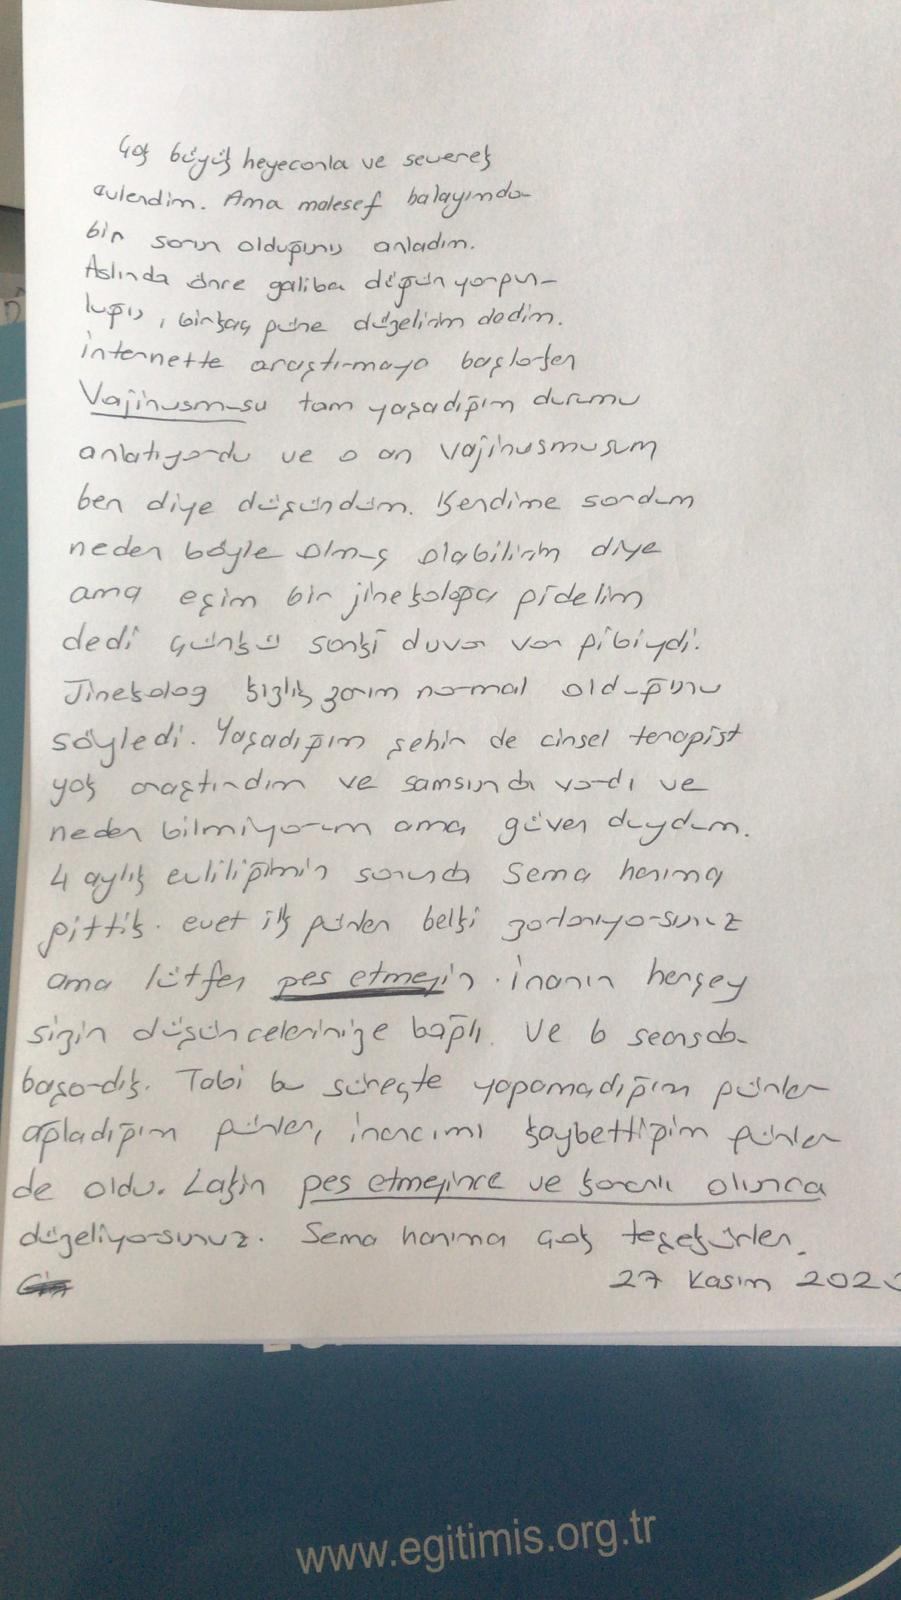 Çok büyük heyecanla ve severek
evlendim. Ama malesef balayında
bir sorun olduğunu anladım.
Aslında önce galiba düğün yorgun-
luğu, birkaç güne düzelirim dedim.
internette araştırmaya başlarken
Vajinusmusu tam yaşadığım durumu
anlatıyordu ve o an vajinusmusum
ben diye düşündüm. Kendime sordum
neden böyle olmuş olabilirim diye
ama eşim bir jinekoloğa gidelim
dedi çünkü sanki duvar var gibiydi.
Jinekolog kızlık zarım normal olduğunu
söyledi. Yaşadığım şehir de cinsel terapist
yok araştırdım ve samsunda vardı ve
neden bilmiyorum ama güven duydum.
4 aylık evliliğimin sonunda Sema hanıma
gittik. evet ilk günler belki zorlanıyorsunuz
ama lütfen pes etmeyin. İnanın herşey
sizin düşüncelerinize bağlı. Ve 6 seansda
başardık. Tabi bu süreçte yapamadığım günler
ağladığım günler, inancımı kaybettiğim günler
de oldu. Lakin pes etmeyince ve kararlı olunca
düzeliyorsunuz. Sema hanıma çok teşekürler.
27 Kasım
www.egitimis.org.tr